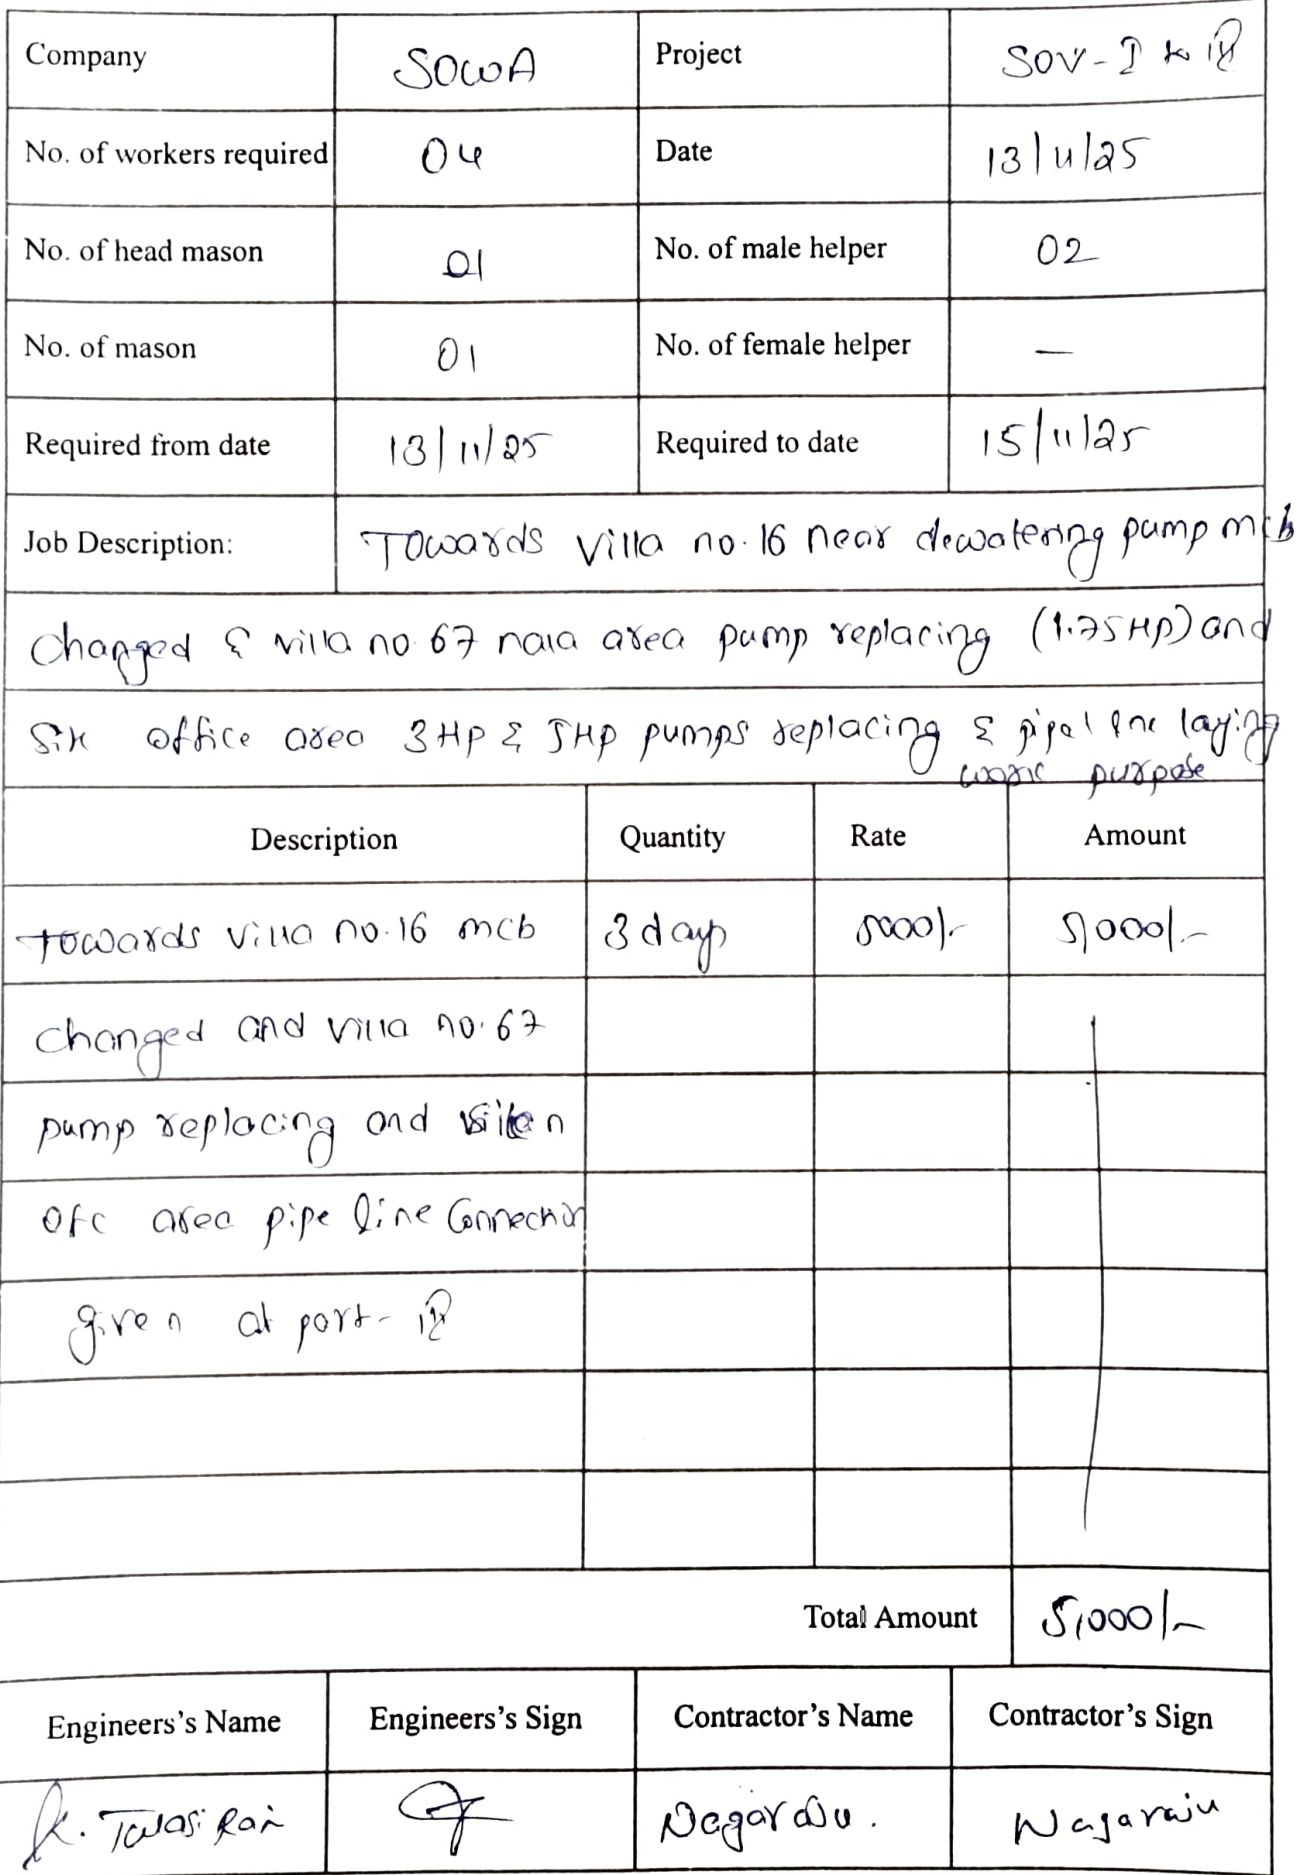 Company SOWA Project SOV-I to III
No. of workers required 04 Date 13/11/25
No. of head mason 01 No. of male helper 02
No. of mason 01 No. of female helper —
Required from date 13/11/25 Required to date 15/11/25
Job Description: Towards villa no. 16 near dewatering pump mcb
changed & villa no. 67 nala area pump replacing (1.75 HP) and
office area 3HP & 5HP pumps replacing & line laying
work purpose
Description Quantity Rate Amount
Towards villa no. 16 mcb 3 days 5000/- 5,000/-
changed and villa no. 67
pump replacing and
ofc area pipe line Connection
given at part- III
Total Amount 5,000/-
Engineers's Name Engineers's Sign Contractor's Name Contractor's Sign
K. Tulasi Ram Nagaraju. Nagaraju